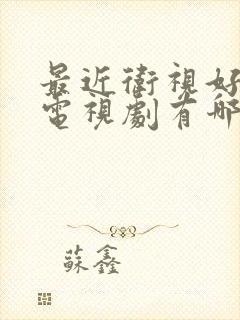 最近衛視好
電視劇有哪
蘇鑫